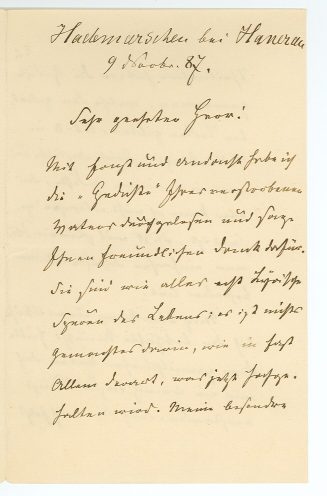 Hademarschen bei Hanerau
9 Novbr. 87.
Sehr geehrter Herr!
Mit Ernst und Andacht habe ich
die „Gedichte" Ihres verstorbenen
Vaters durchgelesen und sage
Ihnen freundlichen Dank dafür.
Sie sind wie alles echt Lyrische
Spuren des Lebens; es ist nichts
Gemachtes darin, wie in fast
Allem derart, was jetzt hochge-
halten wird. Meine besondre